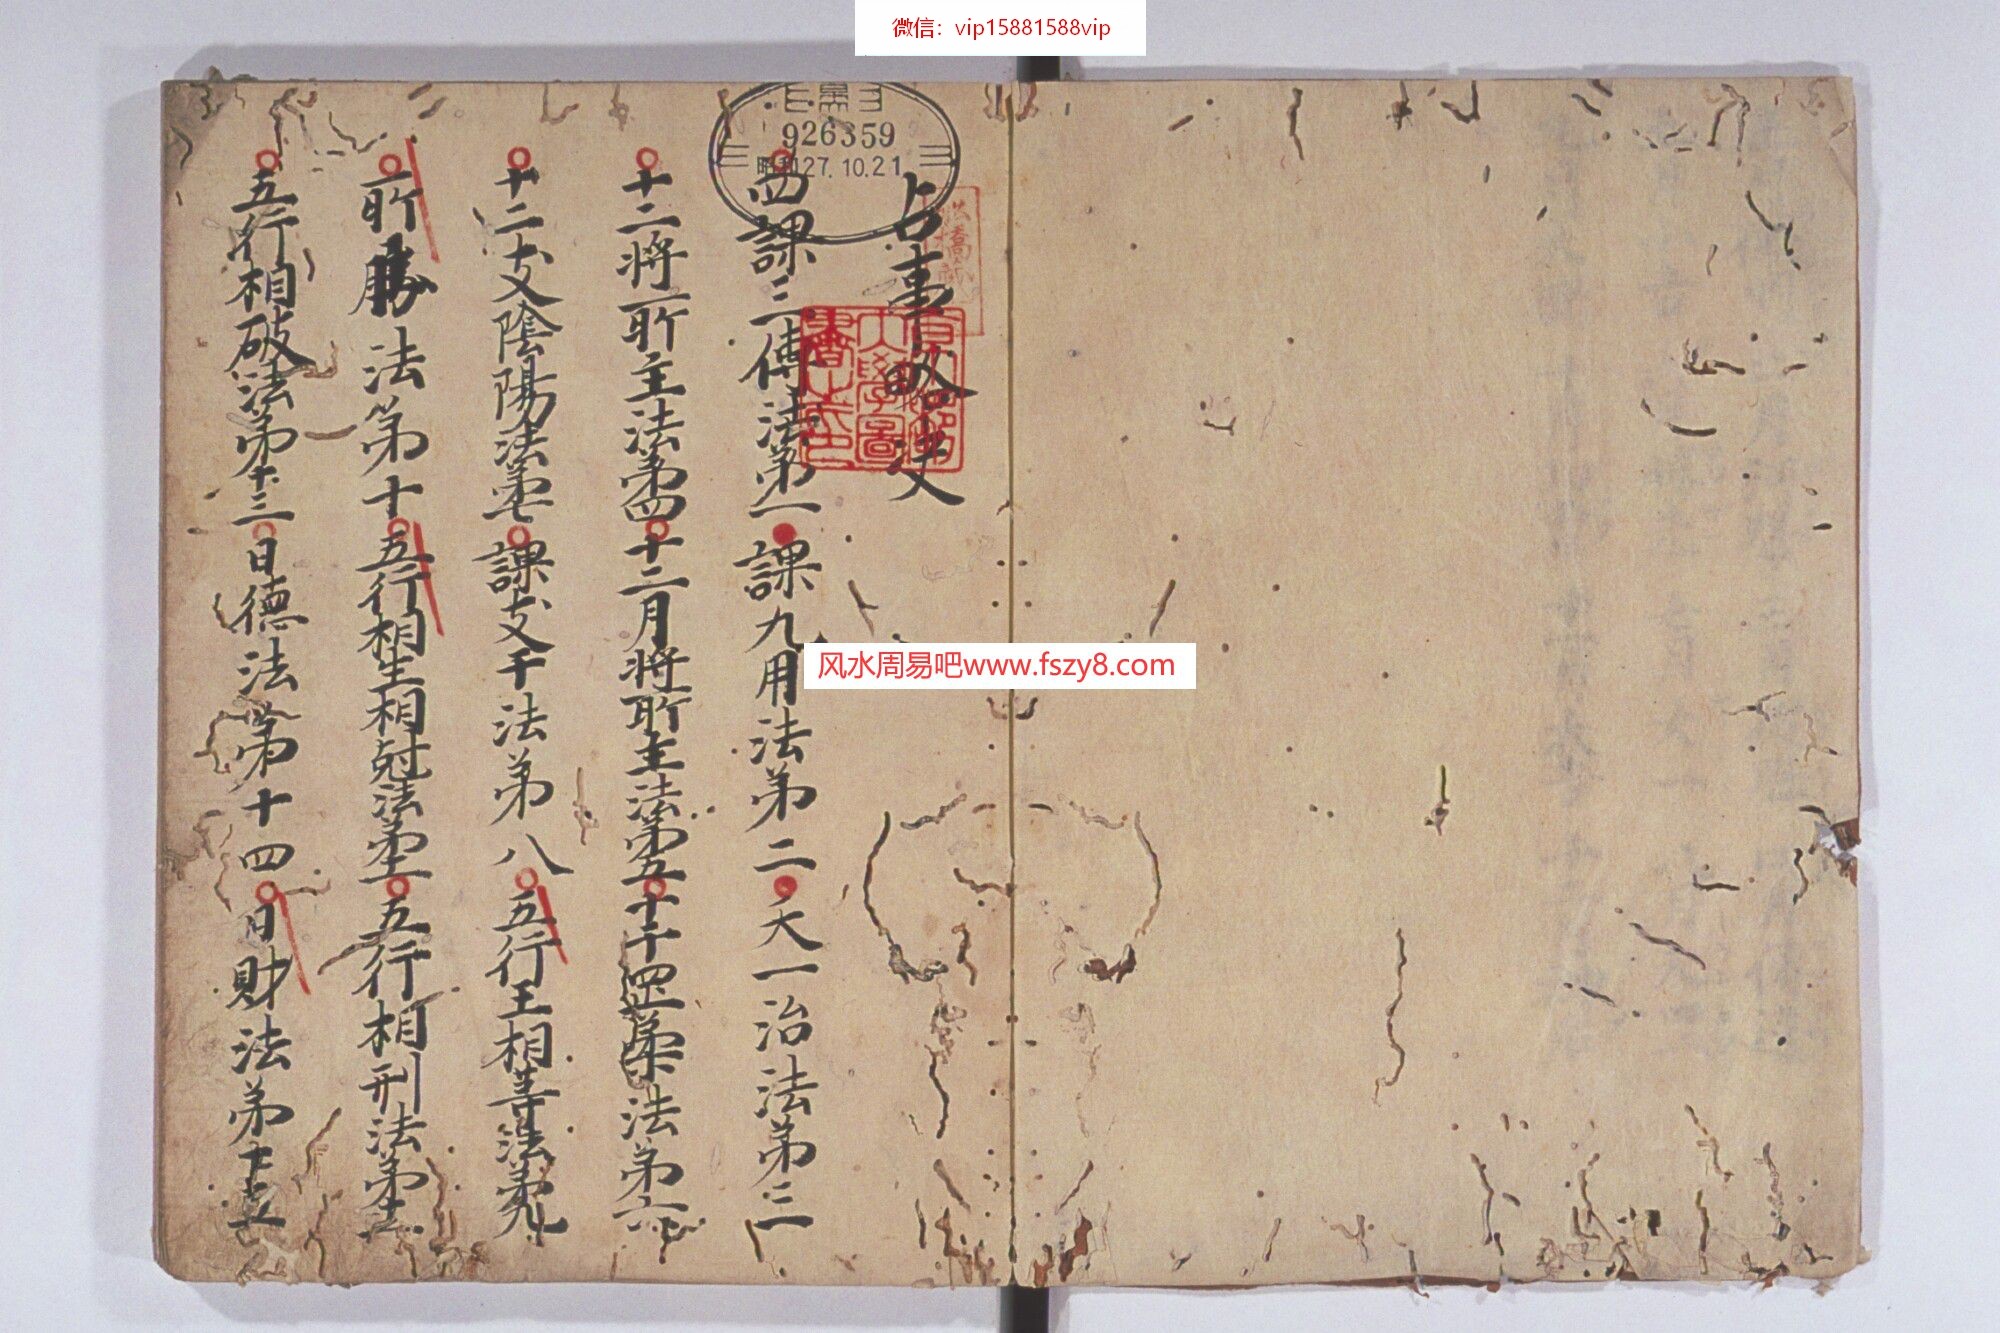 微信：vip15881588vip
占事略决
四課三傳法第一 課九用法第二 大一治法第三
十二將所主法第四 十二月將所主法第五 十干罡柰法第六
十二支陰陽法第七 課支干法第八 五行王相等法第九
所勝法第十 五行相生相尅法第十一 五行相刑法第十二
五行相破法第十三 日德法第十四 日財法第十五
926359
昭和27.10.21
京都帝國大學圖書之印
风水周易吧www.fszy8.com